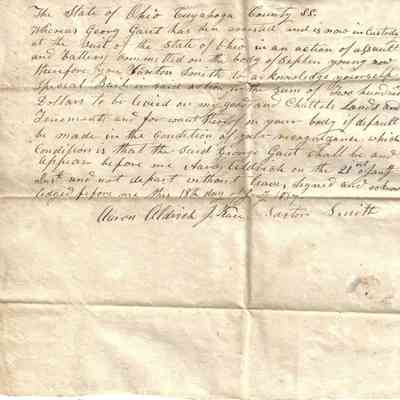 The State of Ohio Cuyahoga County SS.
Whereas Georg Garit has been arrested and is now in Custody
at the Suit of the State of Ohio in an action of assault
and Battery committed on the body of Stephen young now
therefore you Saxton Smith to acknowledge yourself
Special Bail in said action in the sum of two hundred
Dollars to be levied on my goods and Chattels Lands and
Tenements and for want thereof on your body if default
be made in the Condition of recognizance which
Condition is that the Said George Garit shall be and
appear before me Aaron Aldrich on the 21st of
and not depart without leave, signed and acknow
ledged before me this 18th day
Aaron Aldrich J. Peace Saxton Smith